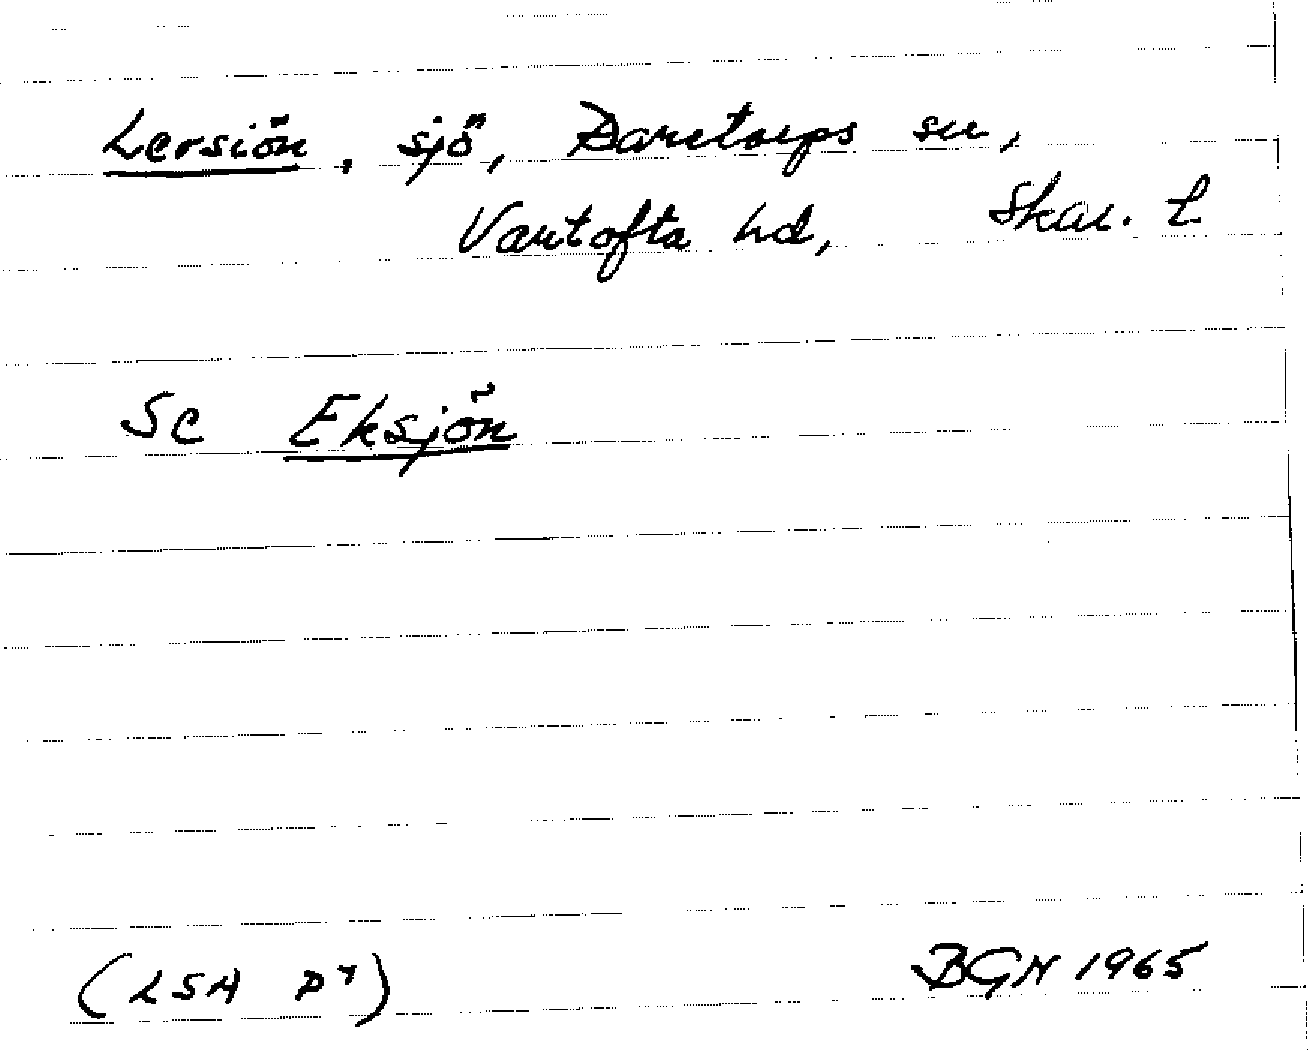 Lersiön, sjö, Daretorps sn,
Vartofta hd, Skar. l
Se Eksjön
(LSA D7)
BGN 1965